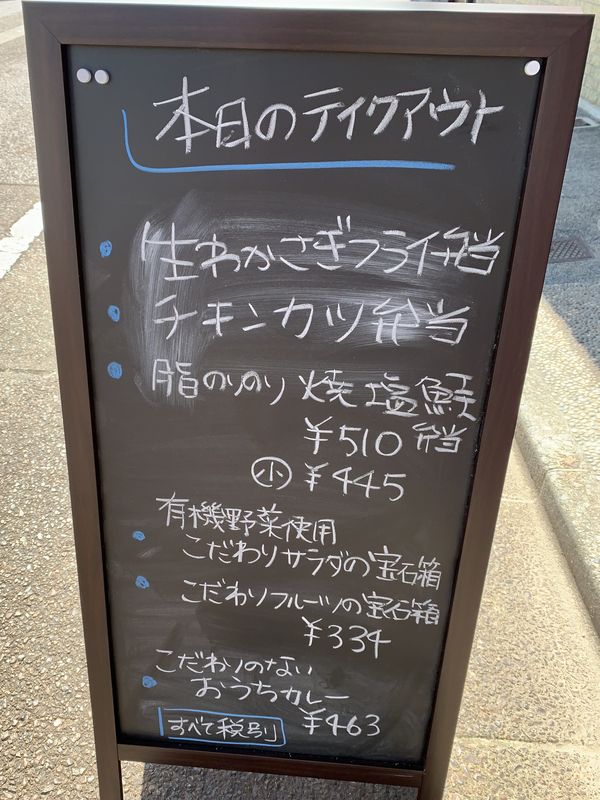 本日のテイクアウト
生わかさぎフライ弁当
チキンカツ弁当
脂のりのり 焼塩鮭
¥510 弁当
小 ¥445
有機野菜使用
こだわりサラダの宝石箱
こだわりフルーツの宝石箱
¥334
こだわりのない
おうちカレー
すべて税別 ¥463